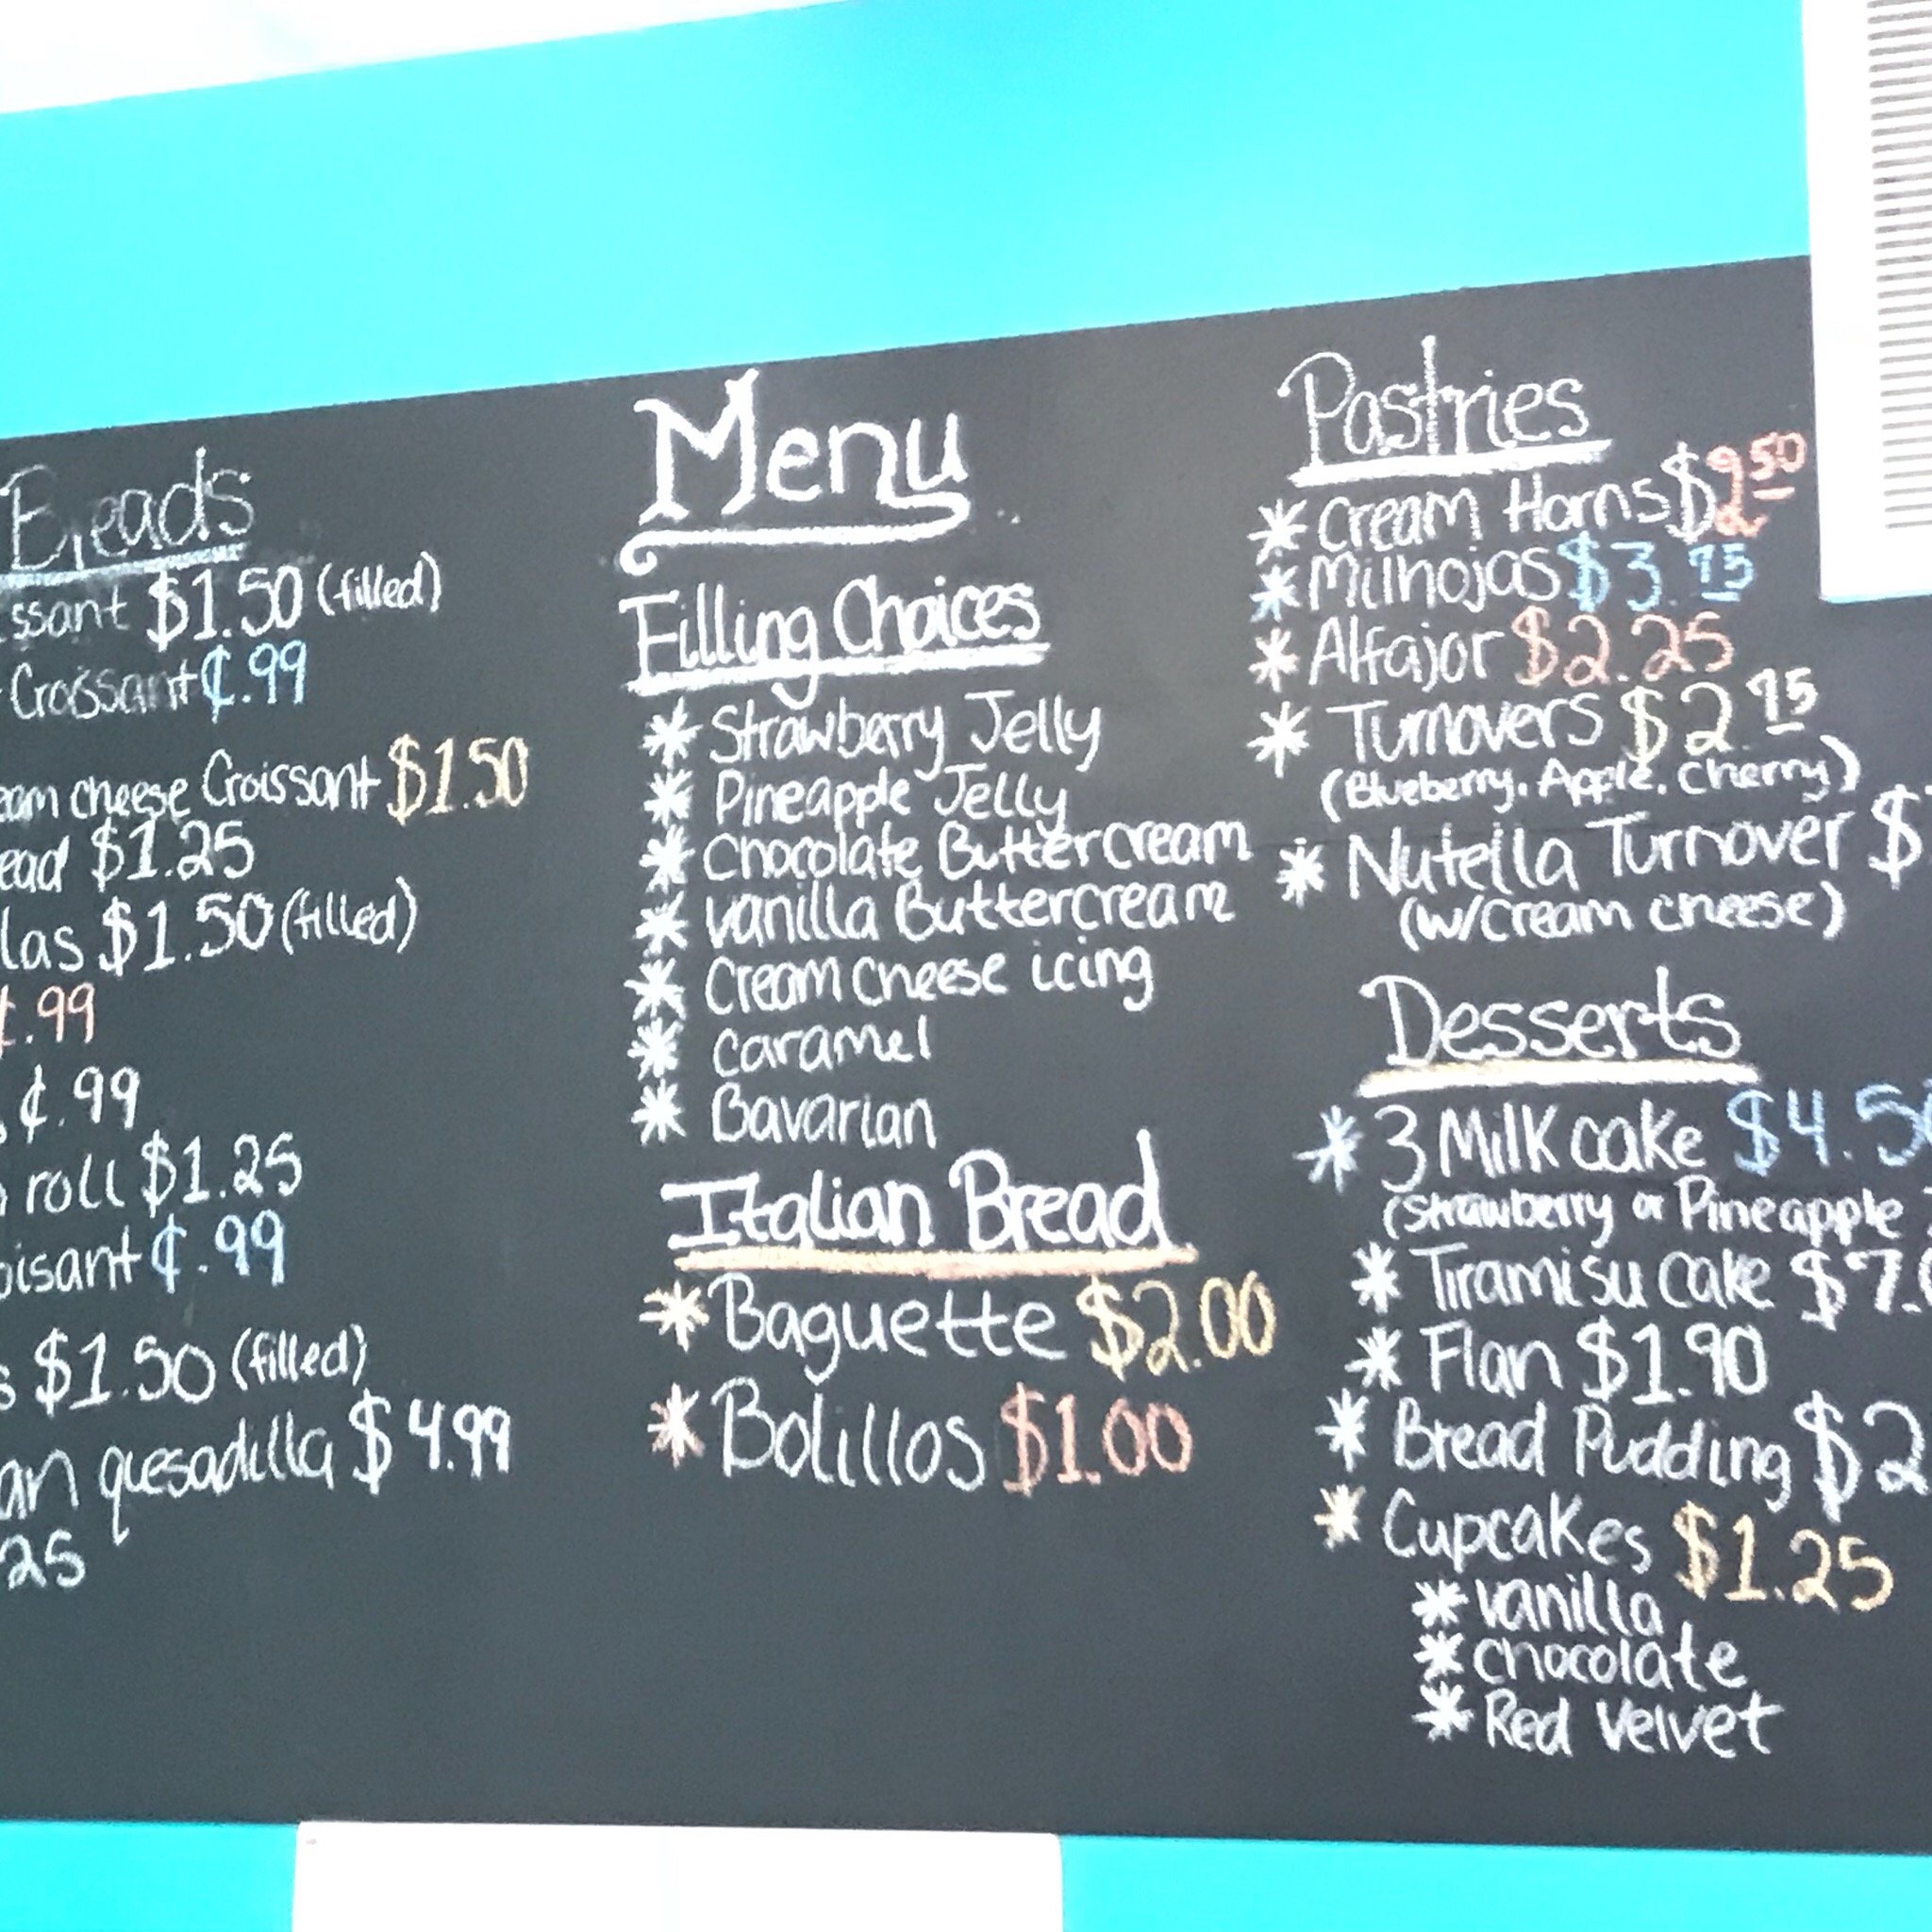 Breads
ssant $1.50 (filled)
Croissant ¢.99
eam cheese Croissant $1.50
ead $1.25
las $1.50 (filled)
¢.99
¢.99
roll $1.25
oisant ¢.99
s $1.50 (filled)
an quesadilla $4.99
25
Menu
Filling Choices
* Strawberry Jelly
* Pineapple Jelly
* Chocolate Buttercream
* vanilla Buttercream
* Cream cheese icing
* caramel
* Bavarian
Italian Bread
* Baguette $2.00
* Bolillos $1.00
Pastries
* Cream Horns $2.50
* Milhojas $3.75
* Alfajor $2.25
* Turnovers $2.75
(Blueberry, Apple, Cherry)
* Nutella Turnover $
(w/cream cheese)
Desserts
* 3 Milk cake $4.5
(strawberry or Pineapple
* Tiramisu Cake $7.
* Flan $1.90
* Bread Pudding $2
* Cupcakes $1.25
* vanilla
* chocolate
* Red velvet